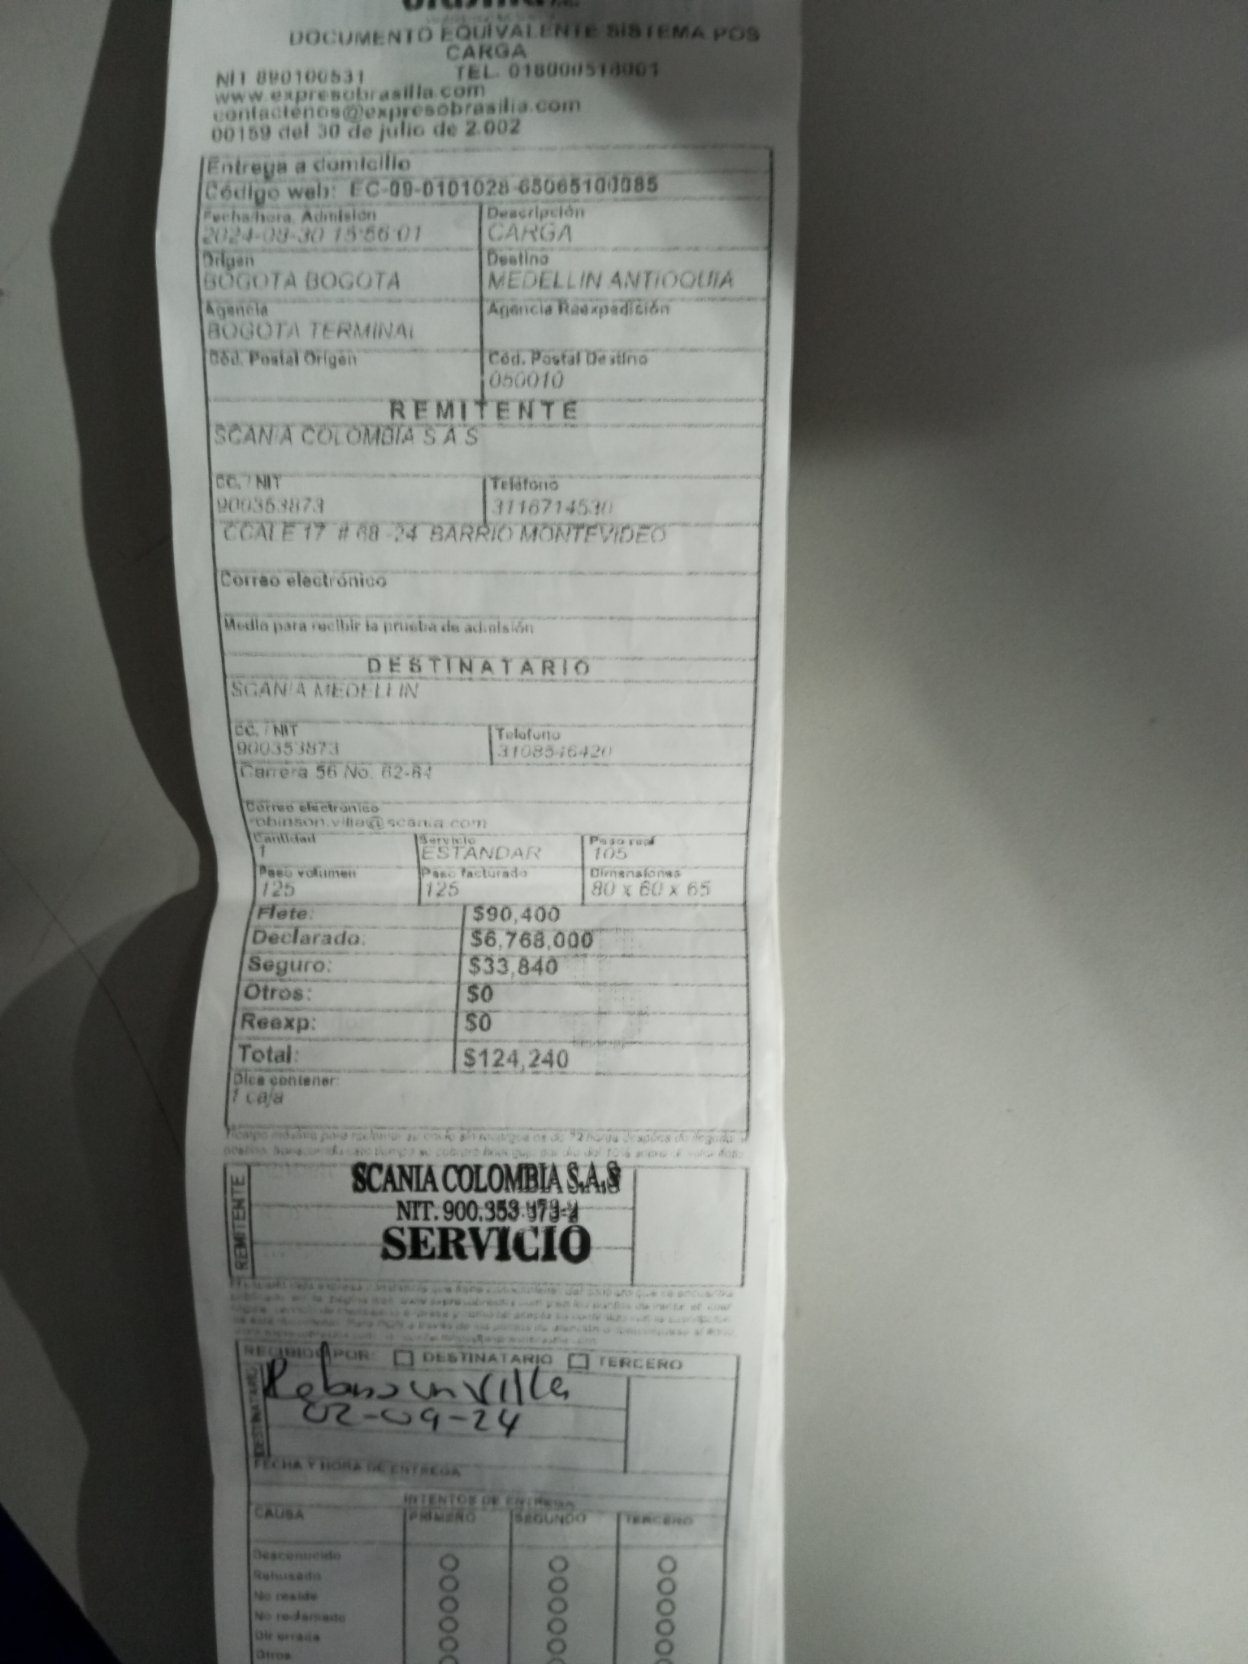 DOCUMENTO EQUIVALENTE SISTEMA POS
CARGA
NIT 890100531 TEL. 018000518001
www.expresobrasilia.com
contactenos@expresobrasilia.com
00159 del 30 de julio de 2.002
Entrega a domicilio
Código web: EC-09-0101028-65065100085
Fecha/hora. Admisión Descripción
2024-08-30 15:56:01 CARGA
Origen Destino
BOGOTA BOGOTA MEDELLIN ANTIOQUIA
Agencia Agencia Reexpedición
BOGOTA TERMINAL
Cód. Postal Origen Cód. Postal Destino
050010
REMITENTE
SCANIA COLOMBIA S A S
CC. / NIT Teléfono
900353873 3116714530
CCALE 17 # 68 -24 BARRIO MONTEVIDEO
Correo electrónico
Medio para recibir la prueba de admisión
DESTINATARIO
SCANIA MEDELLIN
CC. / NIT Teléfono
900353873 3108546420
Carrera 56 No. 62-84
Correo electronico
robinson.villa@scania.com
Cantidad Servicio Peso real
1 ESTANDAR 105
Peso volumen Peso facturado Dimensiones
125 125 80 x 60 x 65
Flete: $90,400
Declarado: $6,768,000
Seguro: $33,840
Otros: $0
Reexp: $0
Total: $124,240
Dice contener:
1 caja
REMITENTE
SCANIA COLOMBIA S.A.S
NIT. 900.353.873-2
SERVICIO
RECIBIDO POR: DESTINATARIO TERCERO
DESTINATARIO
Robinson Villa
02-09-24
FECHA Y HORA DE ENTREGA
INTENTOS DE ENTREGA
CAUSA PRIMERO SEGUNDO TERCERO
Desconocido
Rehusado
No reside
No reclamado
Dir errada
Otros